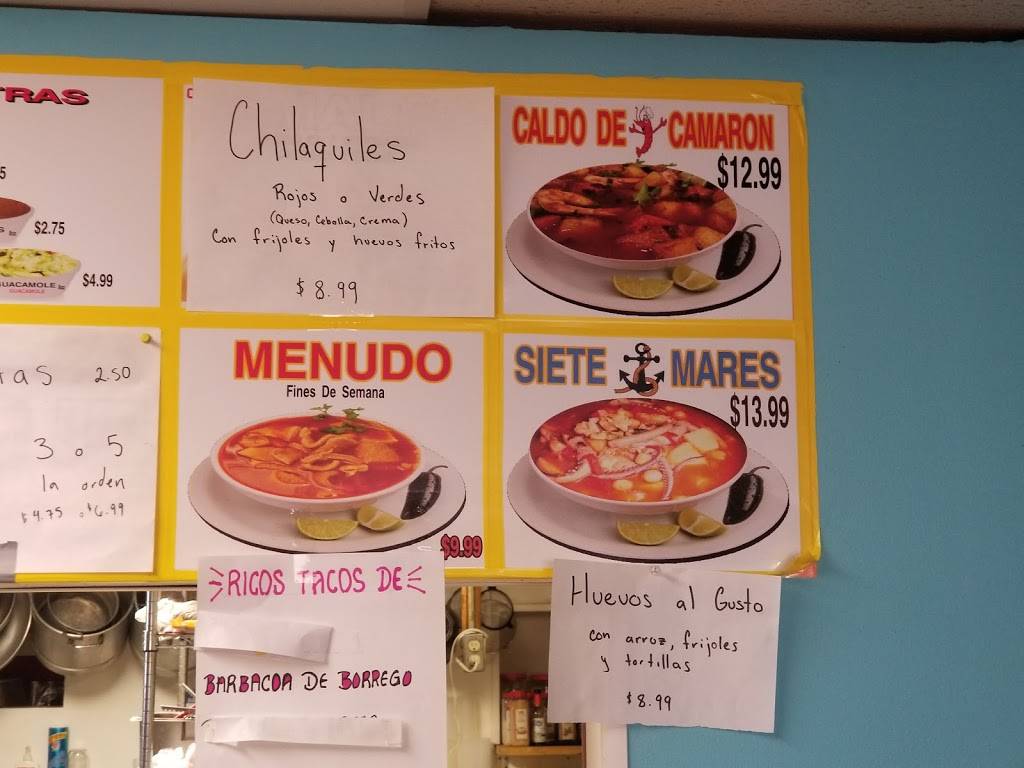 $2.75
GUACAMOLE
$4.99
2.50
3 o 5
la orden
$4.75 o $6.99
Chilaquiles
Rojos o Verdes
(Queso, Cebolla, Crema)
Con frijoles y huevos fritos
$8.99
CALDO DE CAMARON
$12.99
MENUDO
Fines De Semana
$9.99
SIETE MARES
$13.99
RICOS TACOS DE
BARBACOA DE BORREGO
Huevos al Gusto
con arroz, frijoles
y tortillas
$8.99